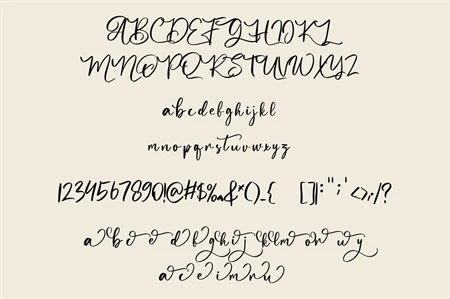 ABCDEFGHIJKL
MNOPQRSTUVWXYZ
abcdefghijkl
mnopqrstuvwxyz
1234567890!@#$%&*()_{ []|:";'<>,/?
a b c d e f g h i j k l m o n u y
a c e i m n u